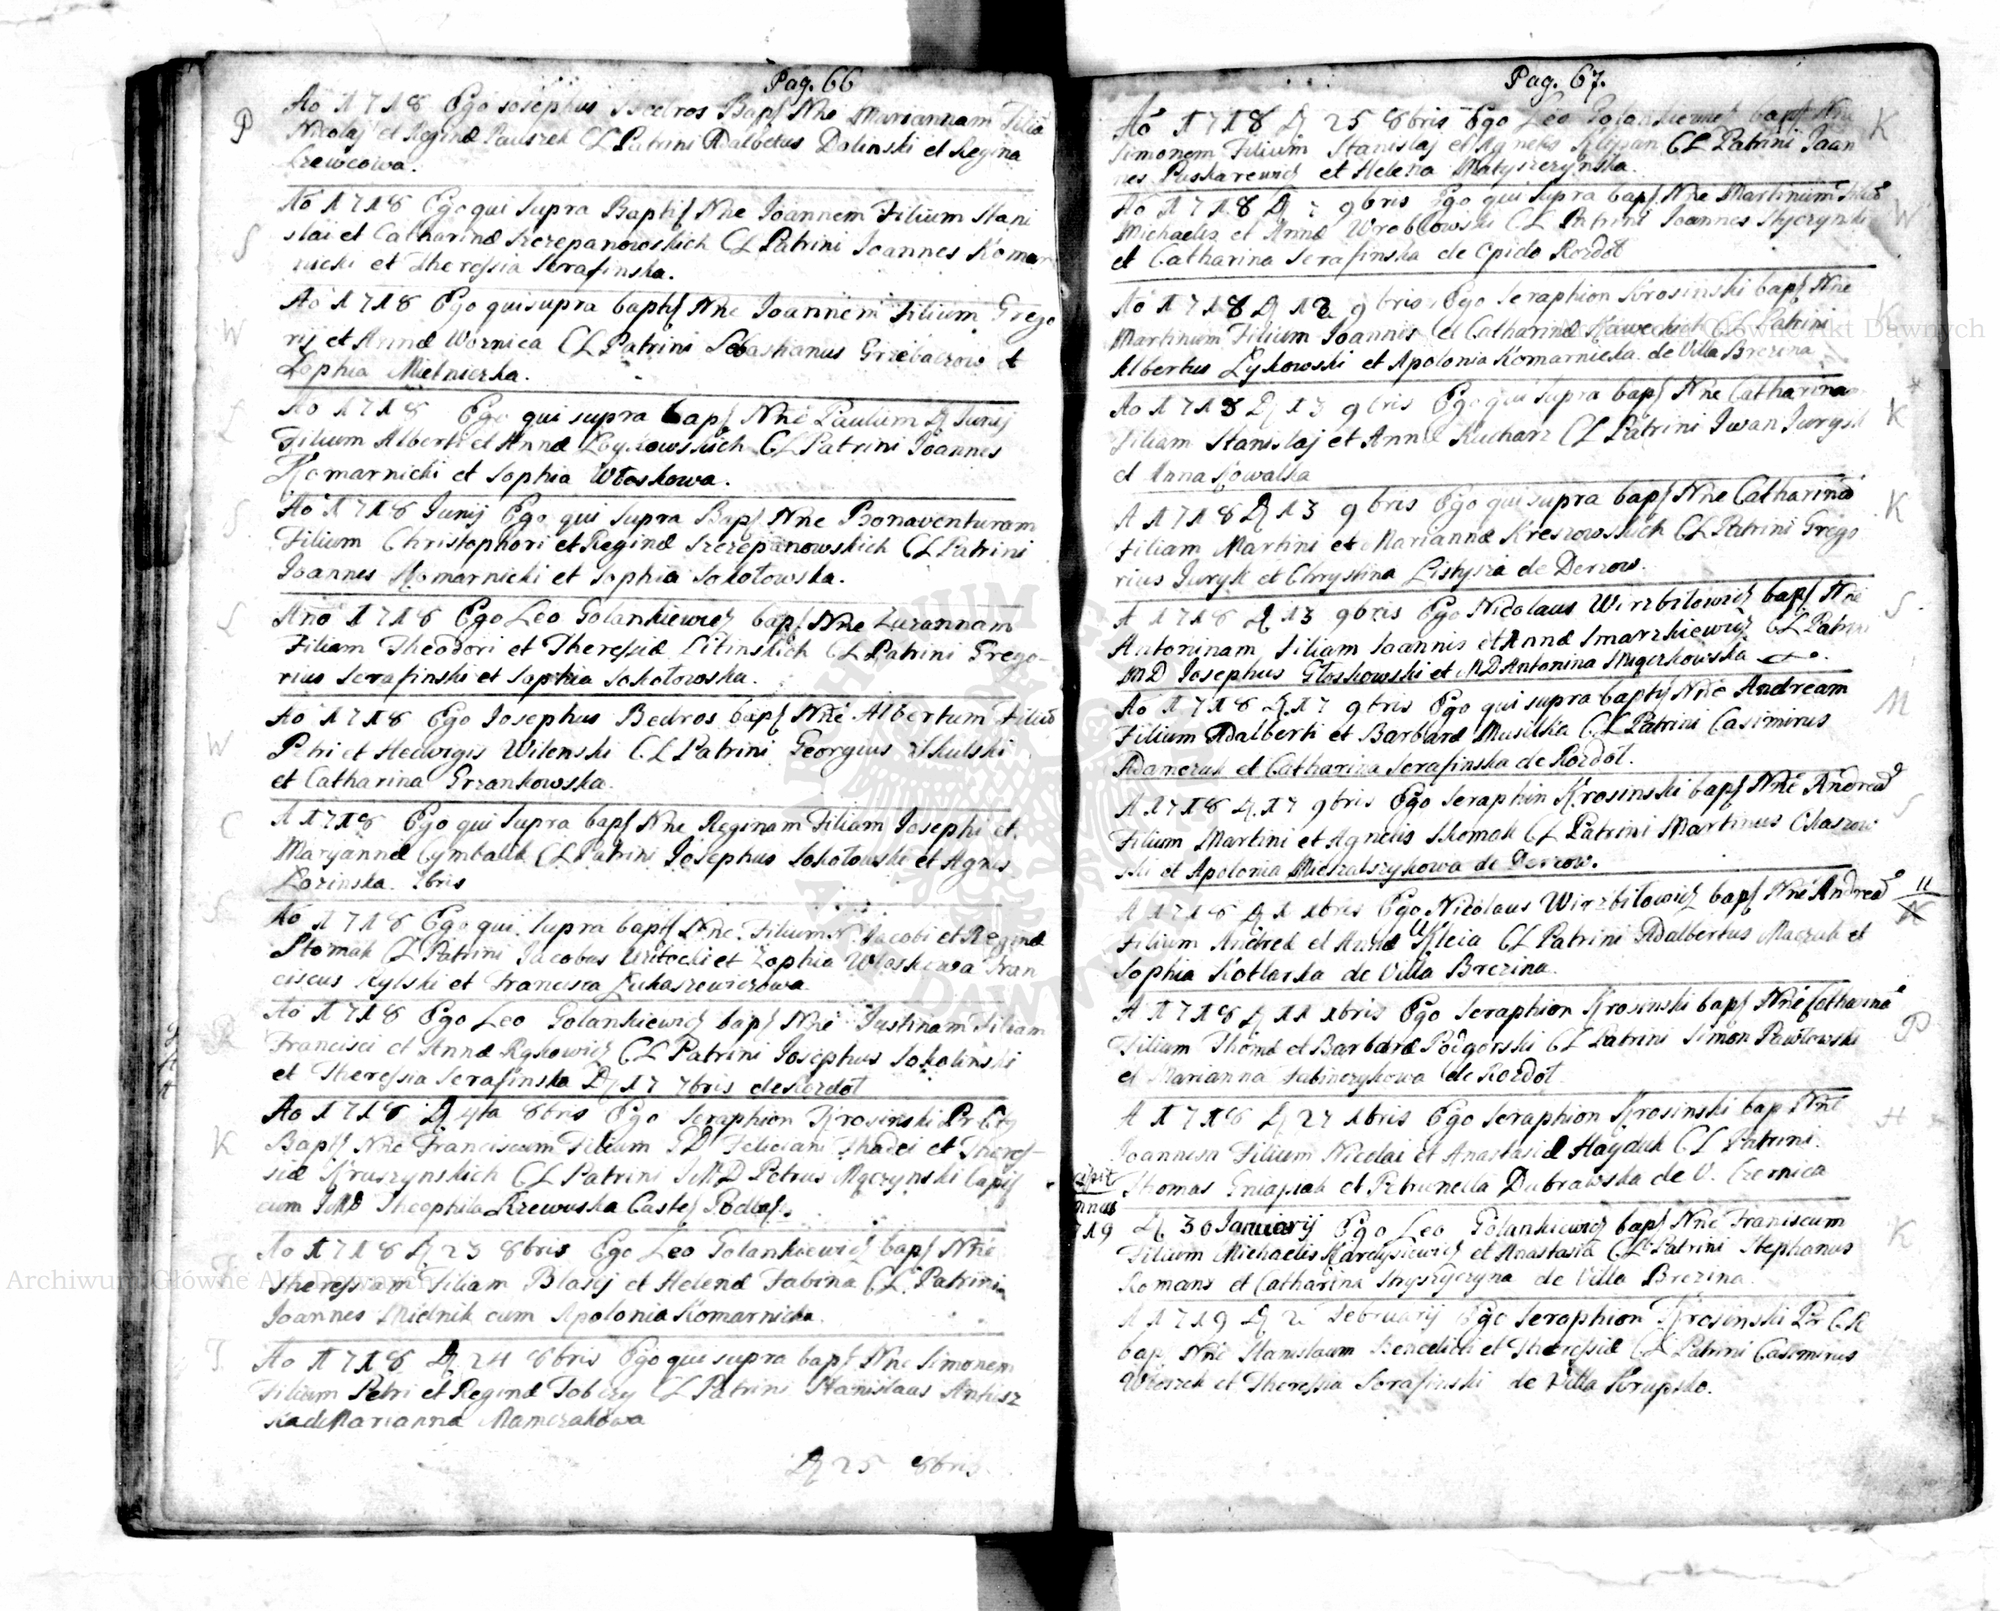 Pag. 66
P
Ao 1718 Ego Josephus Bedros Bapt Nne Mariannam Filiã
Nicolaj et Reginæ Pauszek CL Patrini Adalbetus Dolinski et Regina
Krewcowa.
Ao 1718 Ego qui supra Baptis Nne Joannem Filium Stani
S
slai et Catharinæ Szczepanowskich CL Patrini Joannes Komar
nicki et Theressia Serafinska.
Ao 1718 Ego qui supra baptis Nne Joannem Filium Grego
W
rij et Annæ Woznica CL Patrini Sebastianus Grzebalzow et
Zophia Mielniczka.
Ao 1718 Ego qui supra bap Nne Paulum D Junij
L
Filium Alberti et Annæ CL Patrini Joannes
Komarnicki et Sophia Wloskowa.
Ao 1718 Junij Ego qui supra Bap Nne Bonaventuram
S
Filium Christophori et Reginæ Szczepanowskich CL Patrini
Joannes Komarnicki et Sophia Sokołowska.
Ano 1718 Ego Leo Golankiewicz bap Nne Zuzannam
L
Filiam Theodori et Theressiæ Litinskich CL Patrini Grego-
rius Serafinski et Sophia Sokołowska.
Ao 1718 Ego Josephus Bedros bap Nne Albertum Filiũ
W
Petri et Hedwigis Wilenski CL Patrini Georgius Skulski
et Catharina Grzankowska.
C
A 1718 Ego qui supra bap Nne Reginam Filiam Josephi et
Maryannæ Cymbalik CL Patrini Josephus Sokołowski et Agnes
Lozinska. 7bris
S
Ao 1718 Ego qui supra bapt Nne Filium N. Jacobi et Reginæ
Stomak CL Patrini Jacobus et Zophia Wloskowa Fran
ciscus Rylski et Francisca Łukaszewiczowa
Ao 1718 Ego Leo Golankiewicz bap Nne Justinam Filiam
R
Francisci et Annæ Rykowicz CL Patrini Josephus Sokolinski
et Theressia Serafinska D 17 7bris de Rozdoł
Ao 1718 D 4ta 8bris Ego Seraphion Krosinski Pr
K
Bapt Nne Franciscum Filium Feliciani Thadei et Theres-
siæ Kruszynskich CL Patrini Petrus Mączynski
cum Theophila Rzewuska
Ao 1718 D 23 8bris Ego Leo Golankiewicz bap Nne
F
Theressiam Filiam Blasij et Helenæ Fabina CL Patrini
Joannes Mielnik cum Apolonia Komarnicka.
T
Ao 1718 D 24 8bris Ego qui supra bap Nne Simonem
Filium Petri et Reginæ CL Patrini Stanislaus
Marianna Mamczakowa
D 25 8bris
Pag. 67.
Ao 1718 D 25 8bris Ego Leo Golankiewicz bapt Nne
K
Simonem Filium Stanislaj et Agnetis CL Patrini Joan
nes Puskarewicz et Helena Matyszczynska.
Ao 1718 D 7 9bris Ego qui supra bap Nne Martinum Filiũ
W
Michaelis et Annæ Wroblowski CL Patrini Joannes
et Catharina Serafinska de Opido Rozdoł
Ao 1718 D 13 9bris Ego Seraphion Krosinski bap Nne
K
Martinum Filium Joannis et Catharinæ Kaweckich CL Patrini
Albertus Lykowski et Apolonia Komarnicka de Villa Brezina
Ao 1718 D 13 9bris Ego qui supra bap Nne Catharinam
K
Filiam Stanislaj et Annæ Kucharz CL Patrini Iwan
et Anna Kowalska
A 1718 D 13 9bris Ego qui supra bap Nne Catharinã
K
Filiam Martini et Mariannæ Kreszowskich CL Patrini Grego
rius Juryk et Chrystina Listysza de Derzow.
A 1718 D 13 9bris Ego Nicolaus Wirzbilowicz bap Nne
S
Antoninam Filiam Joannis et Annæ Smarzkiewicz CL Patrini
MD Josephus Głoskowski et MD Antonina
Ao 1718 D 17 9bris Ego qui supra baptis Nne Andream
M
Filium Adalberti et Barbaræ Musilka CL Patrini Casimirus
Adamczak et Catharina Serafinska de Rozdoł.
A 1718 D 17 9bris Ego Seraphin Krosinski bap Nne Andreã
S
Filium Martini et Agnetis Skomak CL Patrini Martinus
ski et Apolonia de Derzow.
A 1718 D 1 xbris Ego Nicolaus Wirzbilowicz bap Nne Andreã
11
K
Filium Andreæ et Annæ Kleia CL Patrini Adalbertus Maczuk et
Sophia Kotlarka de Villa Brezina.
A 1718 D 11 xbris Ego Seraphion Krosinski bap Nne Catharinã
P
Filium Thomæ et Barbaræ Podgorski CL Patrini Simon Pawłowski
et Marianna de Rozdoł
A 1718 D 27 xbris Ego Seraphion Krosinski bap Nne
H
Joannem Filium Nicolai et Anastasiæ Hayduk CL Patrini
Thomas et Petrunella Dubrawska de V. Czernica
Annus
719
D 30 Januarij Ego Leo Golankiewicz bap Nne Franiscum
K
Filium Michaelis et Anastasia CL Patrini Stephanus
Romans et Catharina de Villa Brezina.
A 1719 D 2 Februarij Ego Seraphion Krosinski Pr
bap Nne Stanislaum et Theressiæ CL Patrini Casimirus
et Theressia Serafinski de Villa Krupsko.
Archiwum Główne Akt Dawnych